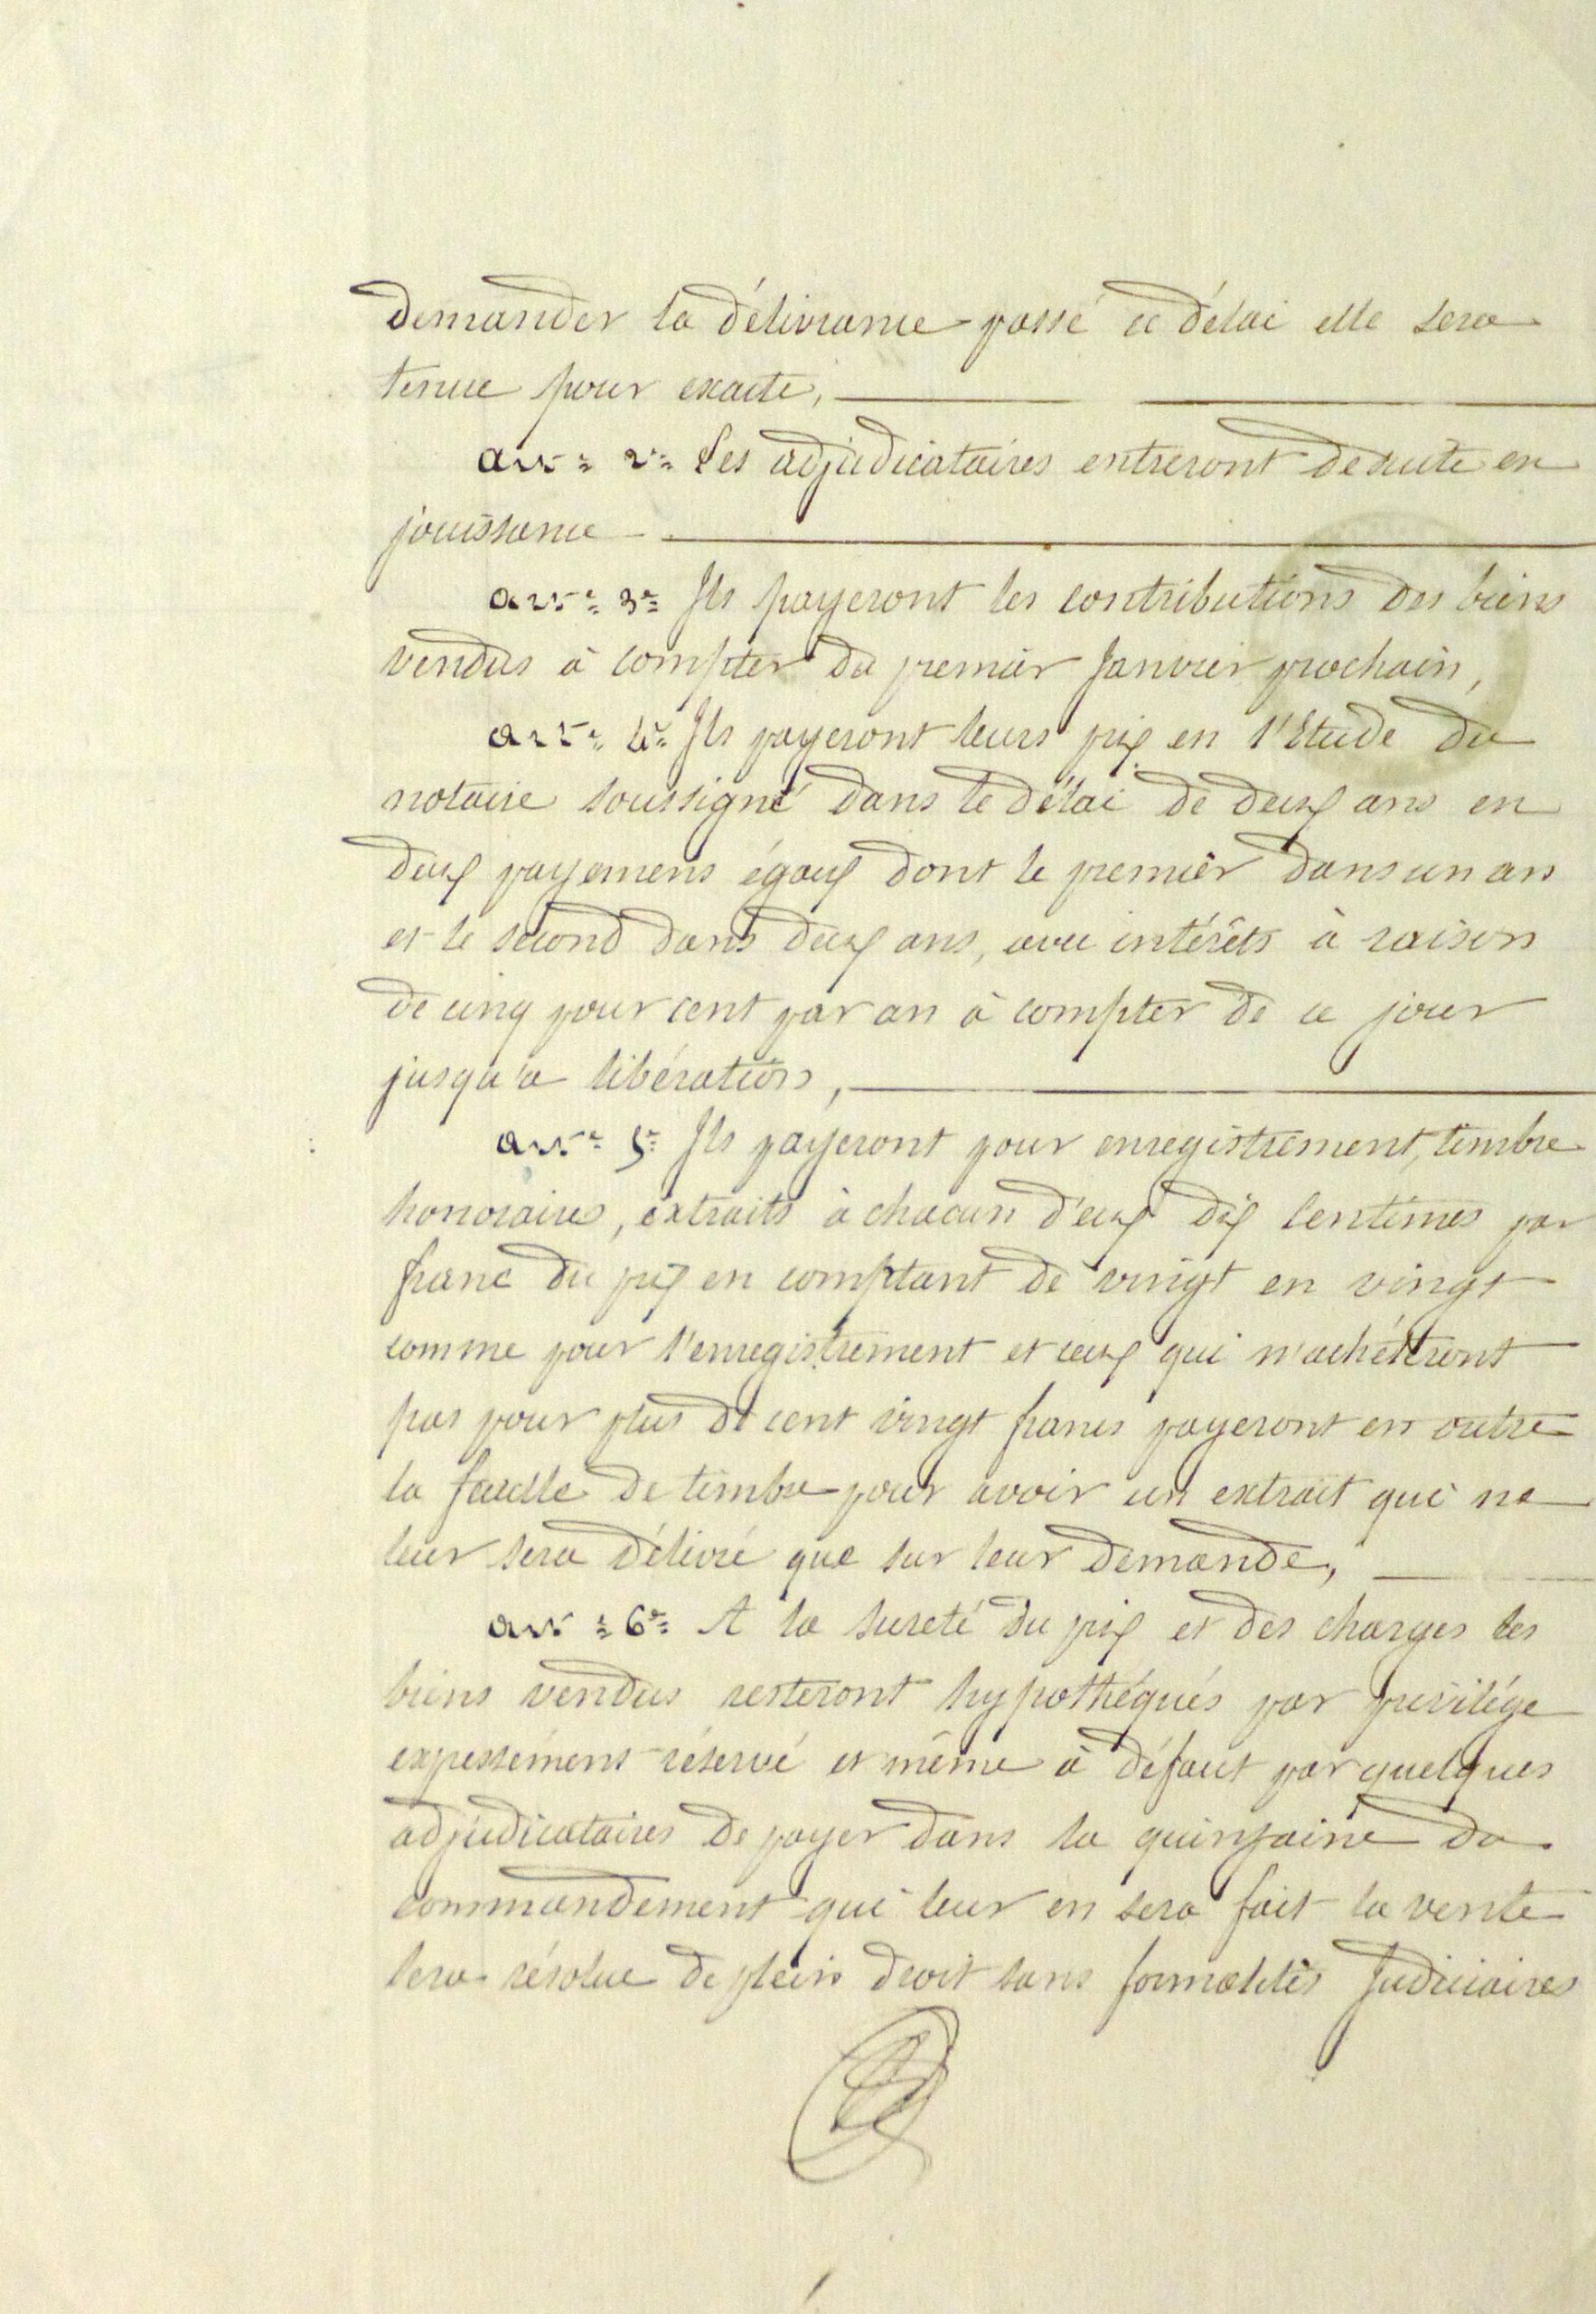 demander la délivrance passé ce délai elle sera
tenue pour exacte,
art: 2e: Les adjudicataires entreront de suite en
jouissance
art: 3e: Ils payeront les contributions des biens
vendus à compter du premier Janvier prochain,
art: 4e: Ils payeront leurs prix en l'Etude du
notaire soussigné dans le délai de deux ans en
deux payemens égaux dont le premier dans un an
et le second dans deux ans, avec intérêts à raison
de cinq pour cent par an à compter de ce jour
jusqu'a libération,
art: 5e: Ils payeront pour enregistrement, timbre
honoraires, extraits à chacun d'eux dix centimes par
franc du prix en comptant de vingt en vingt
comme pour l'enregistrement et ceux qui n'achéteront
pas pour plus de cent vingt francs payeront en outre
la feuille de timbre pour avoir un extrait qui ne
leur sera délivré que sur leur demande,
art: 6e: A la sureté du prix et des charges les
biens vendus resteront hypothéqués par privilége
expressément réservé et même à défaut par quelques
adjudicataires de payer dans la quinzaine du
commandement qui leur en sera fait la vente
sera résolue de plein droit sans formalités Judiciaires